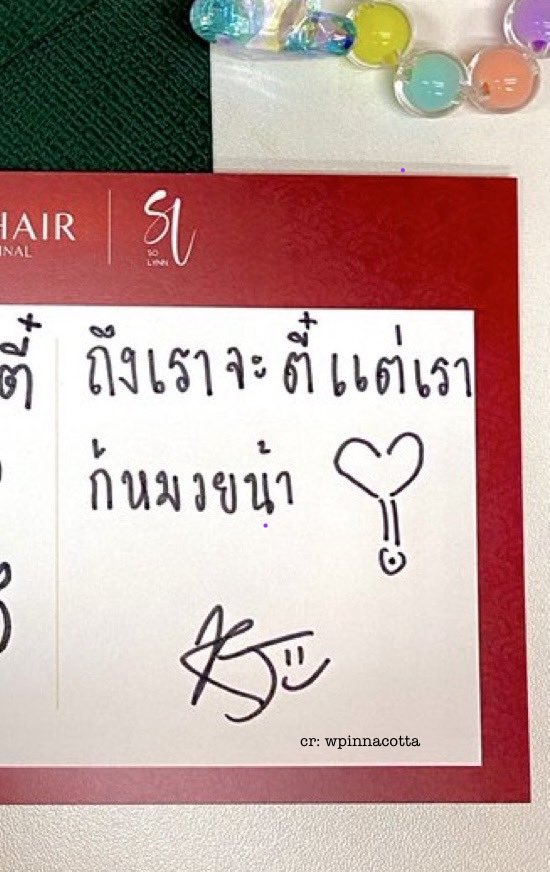 HAIR
INAL
SL
SO
LYNN
ตี๋
ถึงเราจะ ตี๋ แต่เรา
ก้หมวยน้า
cr: wpinnacotta